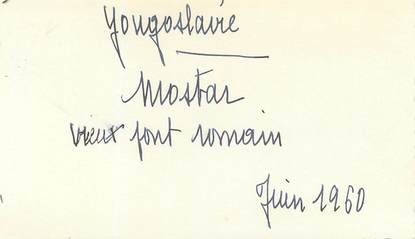 Yougoslavie
Mostar
vieux pont romain
Juin 1960